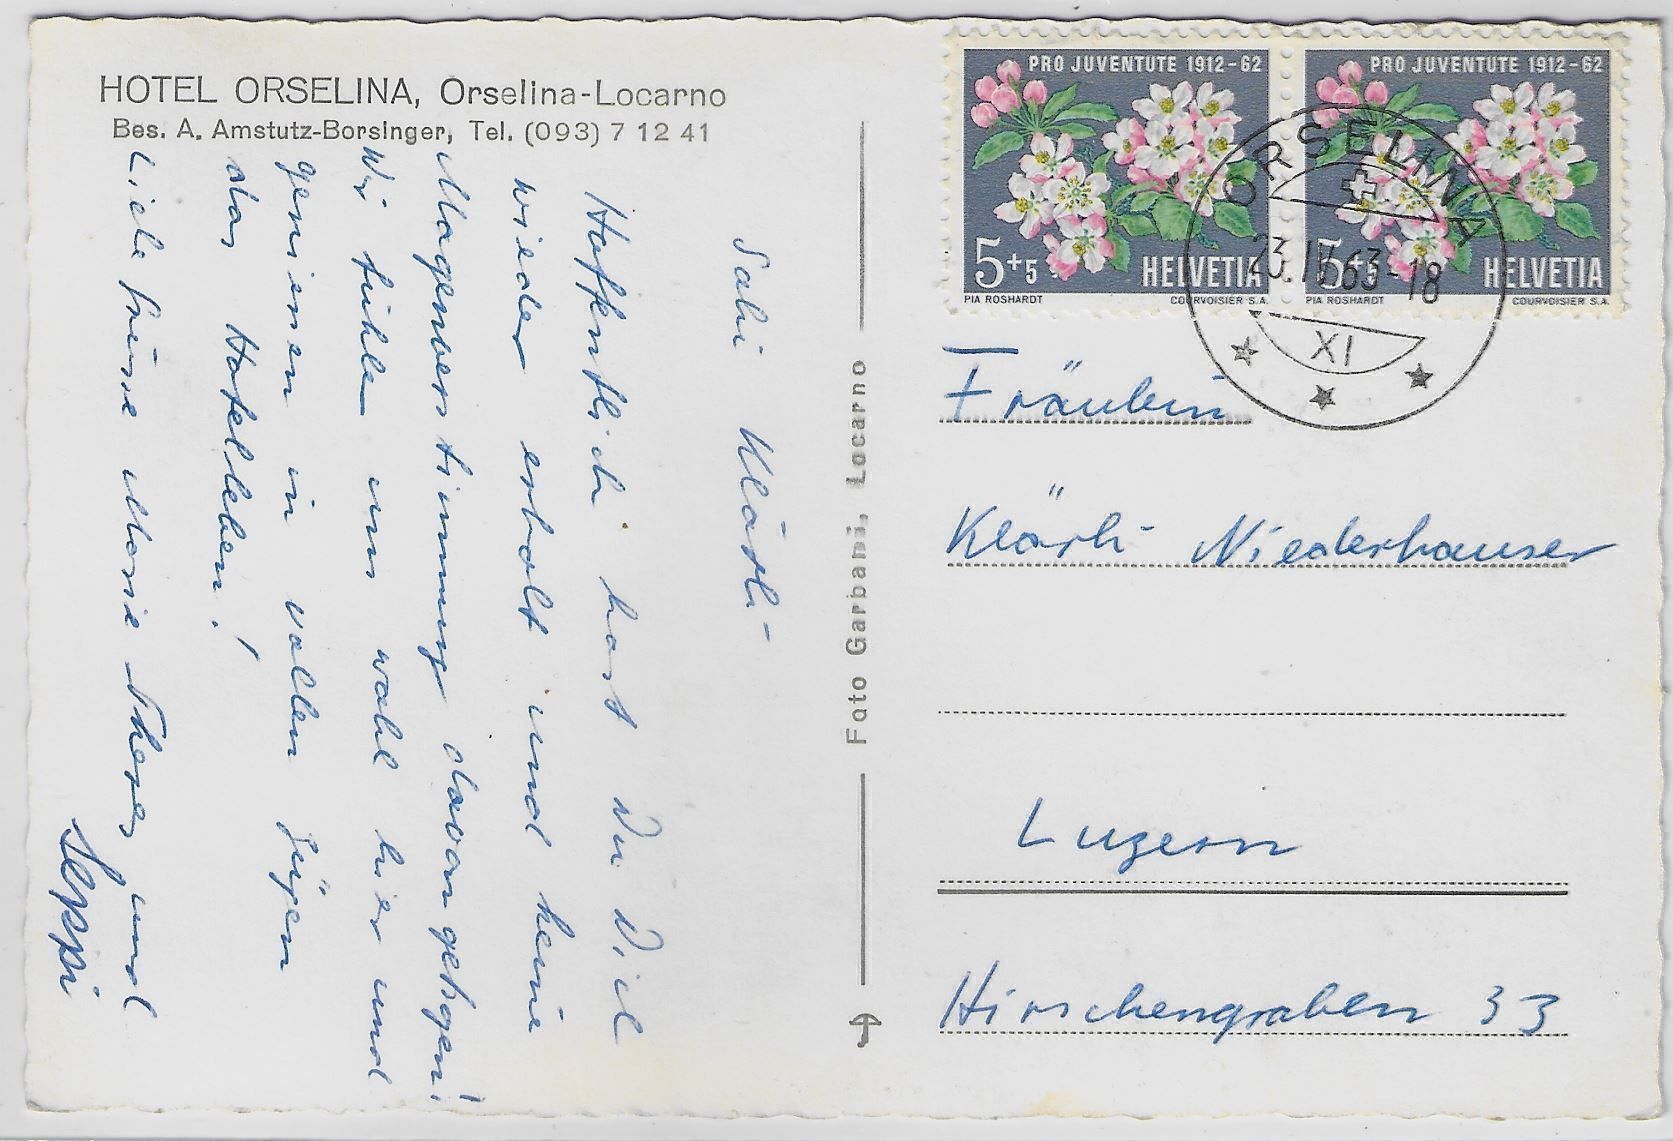 HOTEL ORSELINA, Orselina-Locarno
Bes. A. Amstutz-Borsinger, Tel. (093) 7 12 41
Sali Klärli-
Hoffentlich hast Du Dich
wieder erholt und keine
Magenverstimmung davongetragen!
Wir fühlen uns wohl hier und
geniessen in vollen Zügen
das Hotelleben!
Viele Grüsse Marie Theres und
Seppi
Foto Garbani, Locarno
PRO JUVENTUTE 1912-62
5+5 HELVETIA
PIA ROSHARDT COURVOISIER S.A.
PRO JUVENTUTE 1912-62
5+5 HELVETIA
PIA ROSHARDT COURVOISIER S.A.
ORSELINA
23.IV.63-18
XI
Fräulein
Klärli Niederhauser
Luzern
Hirschengraben 33